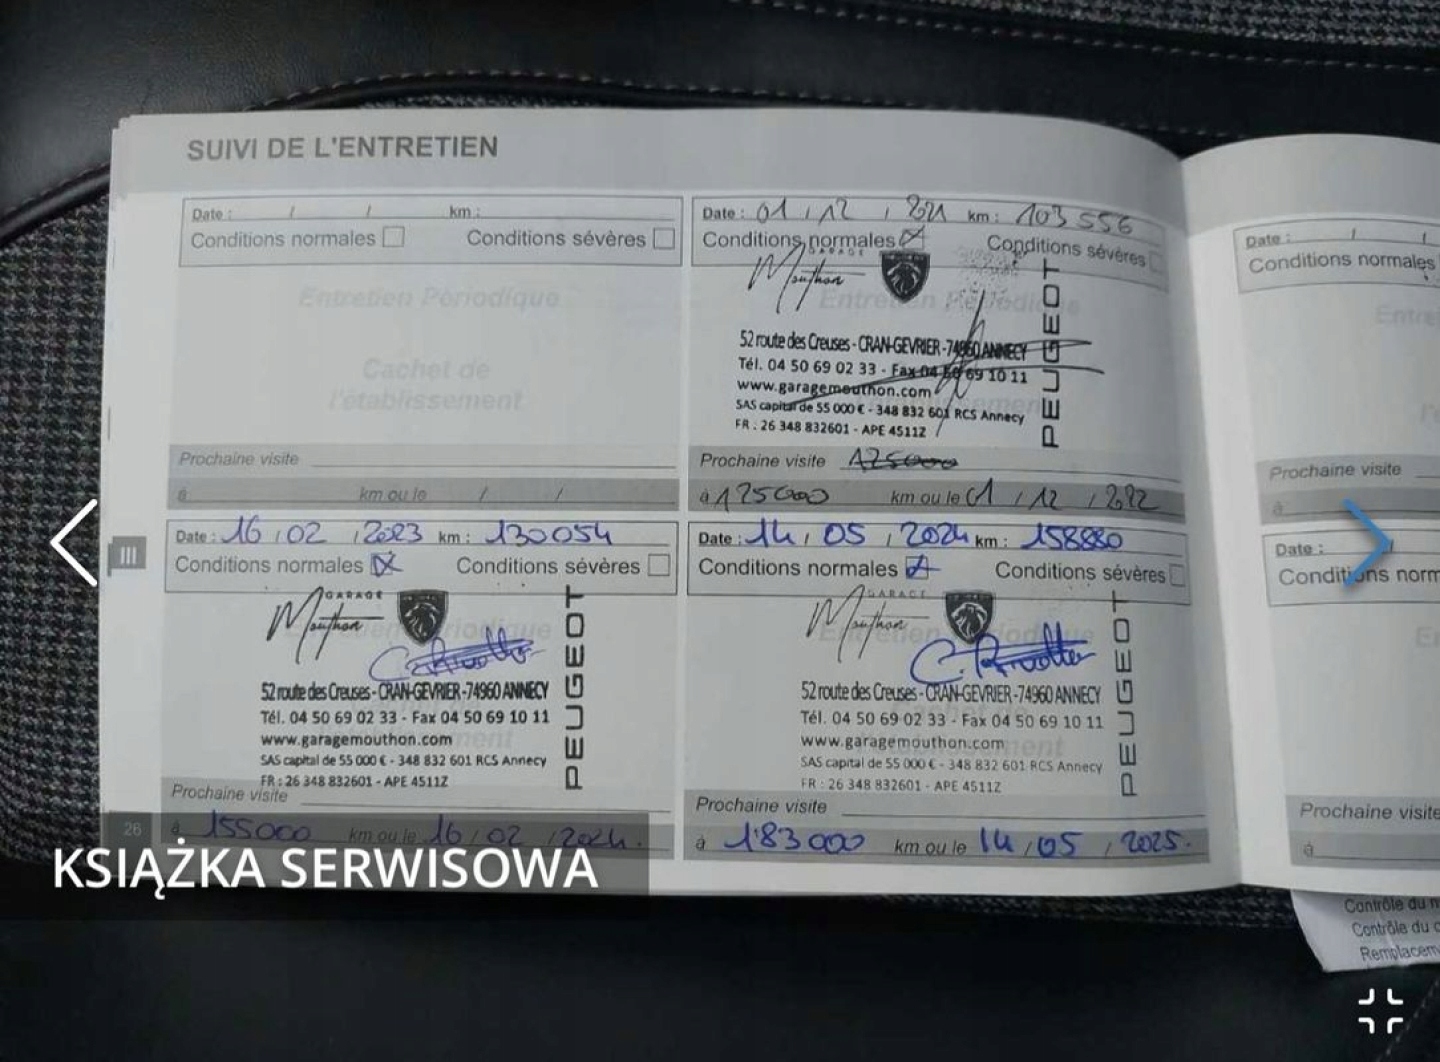 SUIVI DE L'ENTRETIEN
Date : / / km :
Conditions normales Conditions sévères
Entretien Périodique
Cachet de
l'établissement
Prochaine visite
à km ou le / /
Date : 01 / 12 / 2021 km : 103 556
Conditions normales Conditions sévères
GARAGE
Mouthon
Entretien Périodique
PEUGEOT
52 route des Creuses - CRAN-GEVRIER - 74960 ANNECY
Tél. 04 50 69 02 33 - Fax 04 50 69 10 11
www.garagemouthon.com
SAS capital de 55 000 € - 348 832 601 RCS Annecy
FR : 26 348 832601 - APE 4511Z
Prochaine visite 125000
à 125000 km ou le 01 / 12 / 2022
III
Date : 16 / 02 / 2023 km : 130054
Conditions normales Conditions sévères
GARAGE
Mouthon
PEUGEOT
52 route des Creuses - CRAN-GEVRIER - 74960 ANNECY
Tél. 04 50 69 02 33 - Fax 04 50 69 10 11
www.garagemouthon.com
SAS capital de 55 000 € - 348 832 601 RCS Annecy
FR : 26 348 832601 - APE 4511Z
Prochaine visite
à 155000 km ou le 16 / 02 / 2024.
Date : 14 / 05 / 2024 km : 158880
Conditions normales Conditions sévères
GARAGE
Mouthon
PEUGEOT
52 route des Creuses - CRAN-GEVRIER - 74960 ANNECY
Tél. 04 50 69 02 33 - Fax 04 50 69 10 11
www.garagemouthon.com
SAS capital de 55 000 € - 348 832 601 RCS Annecy
FR : 26 348 832601 - APE 4511Z
Prochaine visite
à 183000 km ou le 14 / 05 / 2025.
26
KSIĄŻKA SERWISOWA
Date : / /
Conditions normales
Prochaine visite
à
Date : /
Conditions norm
Prochaine visite
à
Contrôle du
Contrôle du
Remplacem